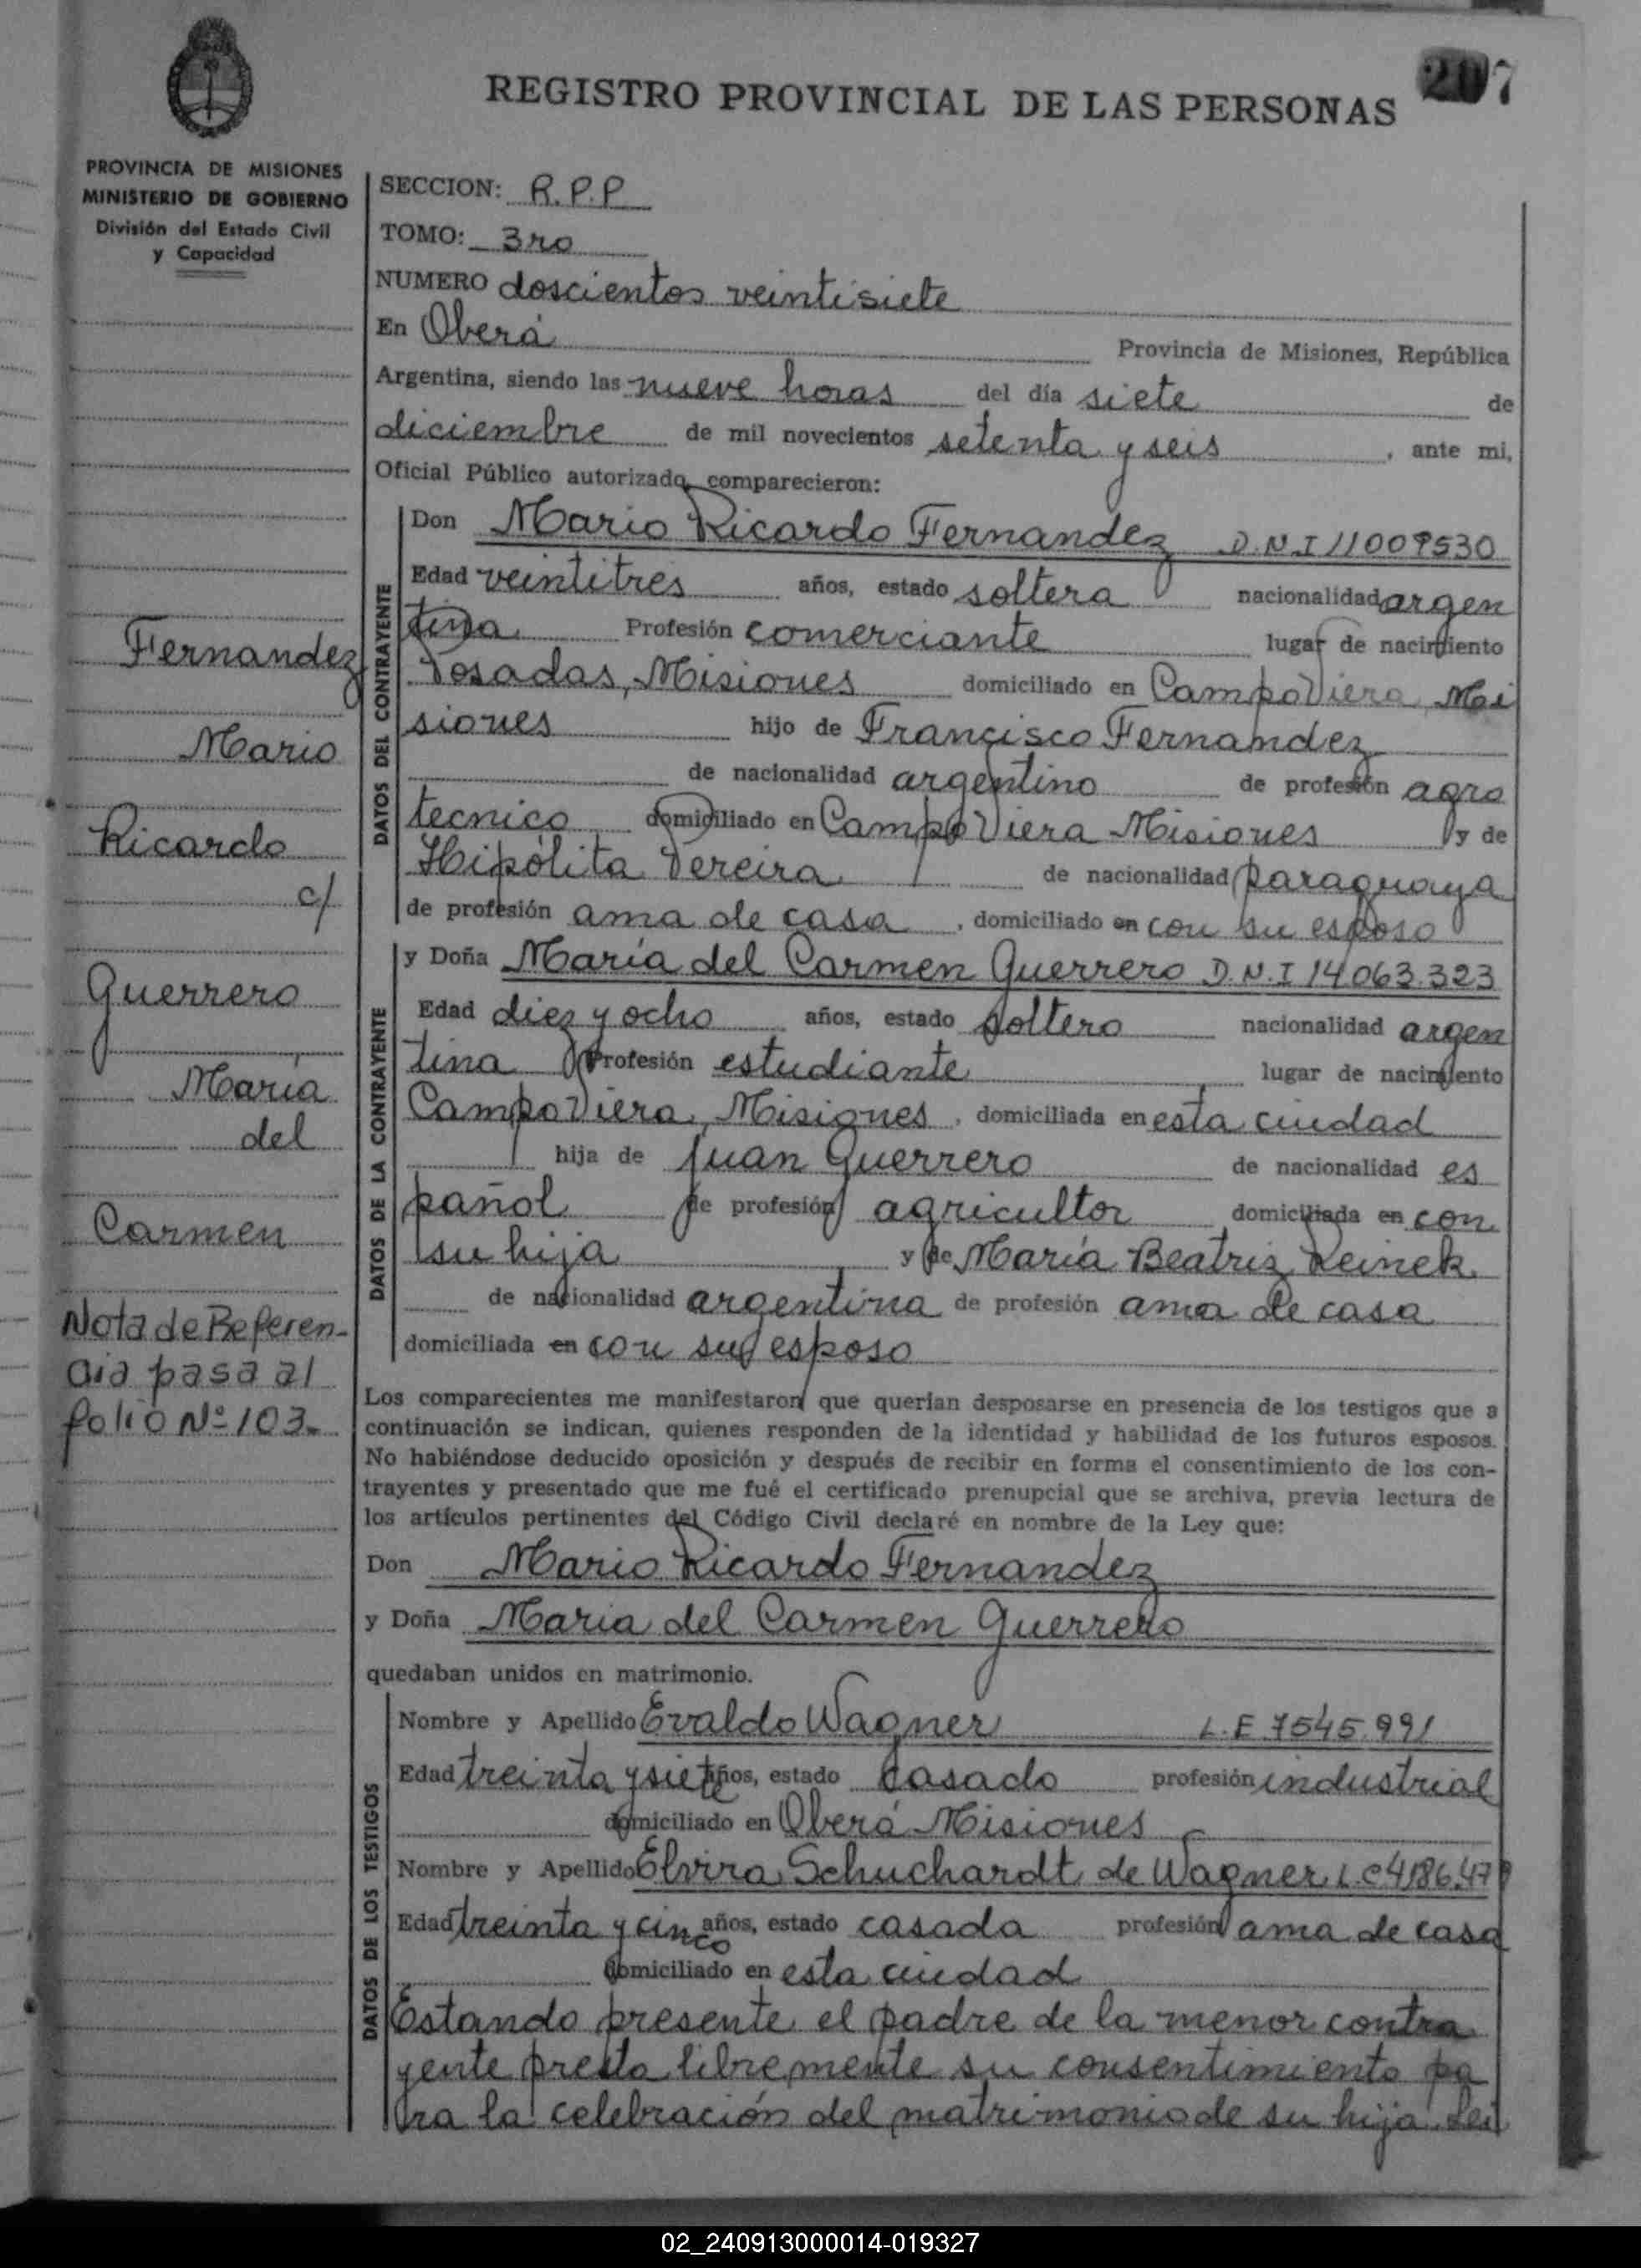 207
REGISTRO PROVINCIAL DE LAS PERSONAS
PROVINCIA DE MISIONES
MINISTERIO DE GOBIERNO
División del Estado Civil
y Capacidad
Fernandez
Mario
Ricardo
c/
Guerrero
María
del
Carmen
Nota de Referen-
cia pasa al
folio Nº 103.
SECCION: R.P.P
TOMO: 3ro
NUMERO doscientos veintisiete
En Oberá Provincia de Misiones, República
Argentina, siendo las nueve horas del día siete de
diciembre de mil novecientos setenta y seis, ante mi,
Oficial Público autorizado, comparecieron:
DATOS DEL CONTRAYENTE
Don Mario Ricardo Fernandez D.N.I 11009530
Edad veintitres años, estado soltera nacionalidad argen
tina Profesión comerciante lugar de nacimiento
Posadas, Misiones domiciliado en Campo Viera, Mi
siones hijo de Francisco Fernandez
de nacionalidad argentino de profesión agro
tecnico domiciliado en Campo Viera Misiones y de
Hipólita Pereira de nacionalidad paraguaya
de profesión ama de casa, domiciliado en con su esposo
DATOS DE LA CONTRAYENTE
y Doña María del Carmen Guerrero D.N.I 14063.323
Edad diez y ocho años, estado soltero nacionalidad argen
tina Profesión estudiante lugar de nacimiento
Campo Viera, Misiones, domiciliada en esta ciudad
hija de Juan Guerrero de nacionalidad es
pañol de profesión agricultor domiciliada en con
su hija y de María Beatriz Reinek
de nacionalidad argentina de profesión ama de casa
domiciliada en con su esposo
Los comparecientes me manifestaron que querían desposarse en presencia de los testigos que a
continuación se indican, quienes responden de la identidad y habilidad de los futuros esposos.
No habiéndose deducido oposición y después de recibir en forma el consentimiento de los con-
trayentes y presentado que me fué el certificado prenupcial que se archiva, previa lectura de
los artículos pertinentes del Código Civil declaré en nombre de la Ley que:
Don Mario Ricardo Fernandez
y Doña Maria del Carmen Guerrero
quedaban unidos en matrimonio.
DATOS DE LOS TESTIGOS
Nombre y Apellido Evaldo Wagner L.E 7545.991
Edad treinta y siete años, estado casado profesión industrial
domiciliado en Oberá Misiones
Nombre y Apellido Elvira Schuchardt de Wagner L.C
Edad treinta y cinco años, estado casada profesión ama de casa
domiciliado en esta ciudad
Estando presente el padre de la menor contra
yente presta libremente su consentimiento pa
ra la celebración del matrimonio de su hija. Lei
02_240913000014-019327